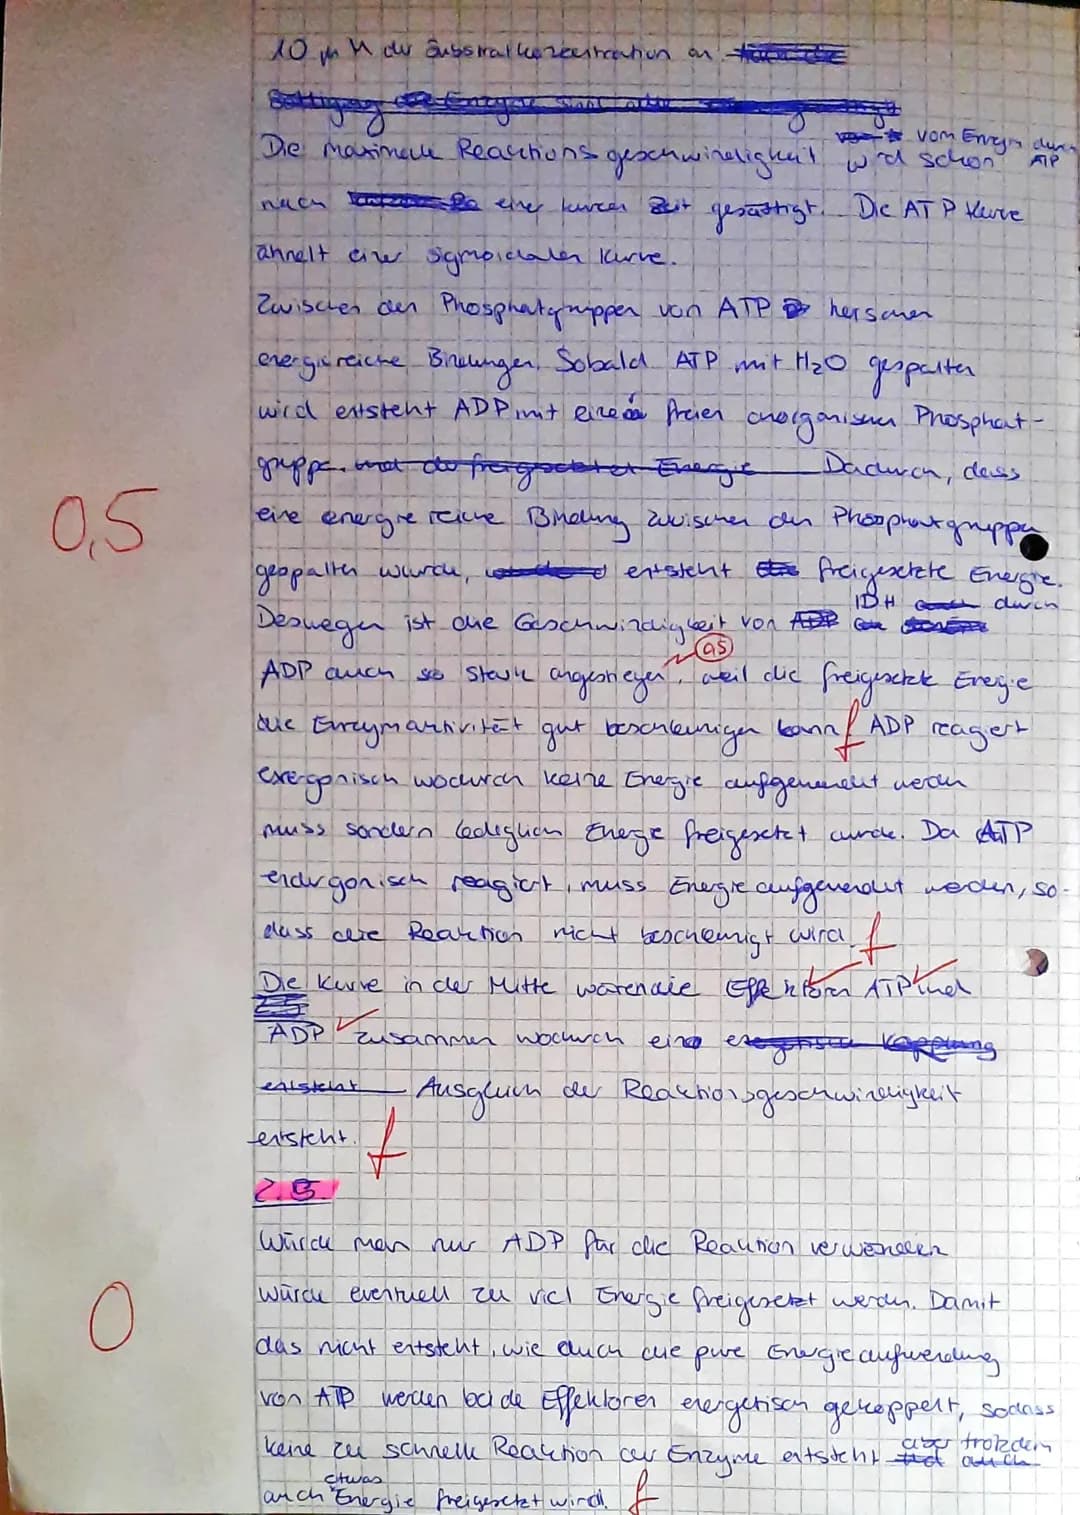 10 µM der Substratkonzentration an
Die maximale Reaktionsgeschwindigkeit wird schon vom Enzym durch ATP
nach einer kurzen Zeit gesättigt. Die ATP Kurve
ähnelt einer sigmoidalen Kurve.
Zwischen den Phosphatgruppen von ATP herschen
energiereiche Bindungen. Sobald ATP mit H₂O gespalten
wird entsteht ADP mit einer freien anorganischen Phosphat-
gruppe. und die freigesetzter Energie Dadurch, dass
0,5
eine energiereiche Bindung zwischen den Phosphatgruppen
gespalten wurde, entsteht freigesetzte Energie.
Deswegen ist die Geschwindigkeit von IDH durch
as
ADP auch so stark angestiegen, weil die freigesetzte Energie
die Enzymaktivität gut beschleunigen kann f ADP reagiert
exergonisch wodurch keine Energie aufgewendet werden
muss sondern lediglich Energie freigesetzt wurde. Da ATP
endergonisch reagiert, muss Energie aufgewendet werden, so-
dass die Reaktion nicht beschleunigt wird. f
Die Kurve in der Mitte waren die Effektoren ATP und
2.5
ADP zusammen wodurch ein exergonische Kopplung
entsteht Ausgleich der Reaktionsgeschwindigkeit
entsteht. f
2.5.
Würde man nur ADP für die Reaktion verwenden
würde eventuell zu viel Energie freigesetzt werden. Damit
0
das nicht entsteht, wie auch die pure Energieaufwendung
von ATP werden beide Effektoren energetisch gekoppelt, sodass
keine zu schnelle Reaktion der Enzyme entsteht aber trotzdem
auch etwas Energie freigesetzt wird. f